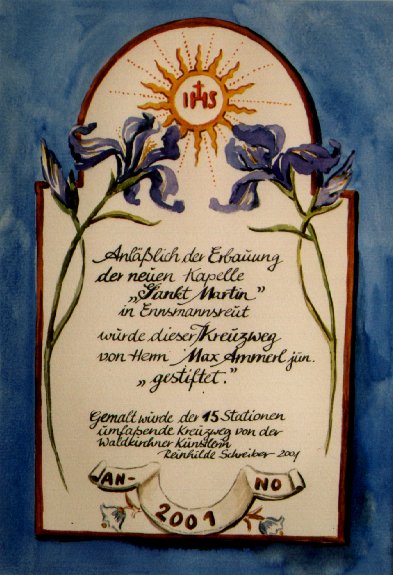 IHS
Anläßlich der Erbauung
der neuen Kapelle
„Sankt Martin"
in Ennsmannsreut
würde dieser Kreuzweg
von Herrn Max Ammerl jun.
„gestiftet."
Gemalt würde der 15 Stationen
umfaßende Kreuzweg von der
Waldkirchner Künstlerin
Reinhilde Schreiber - 2001
AN- NO
2001